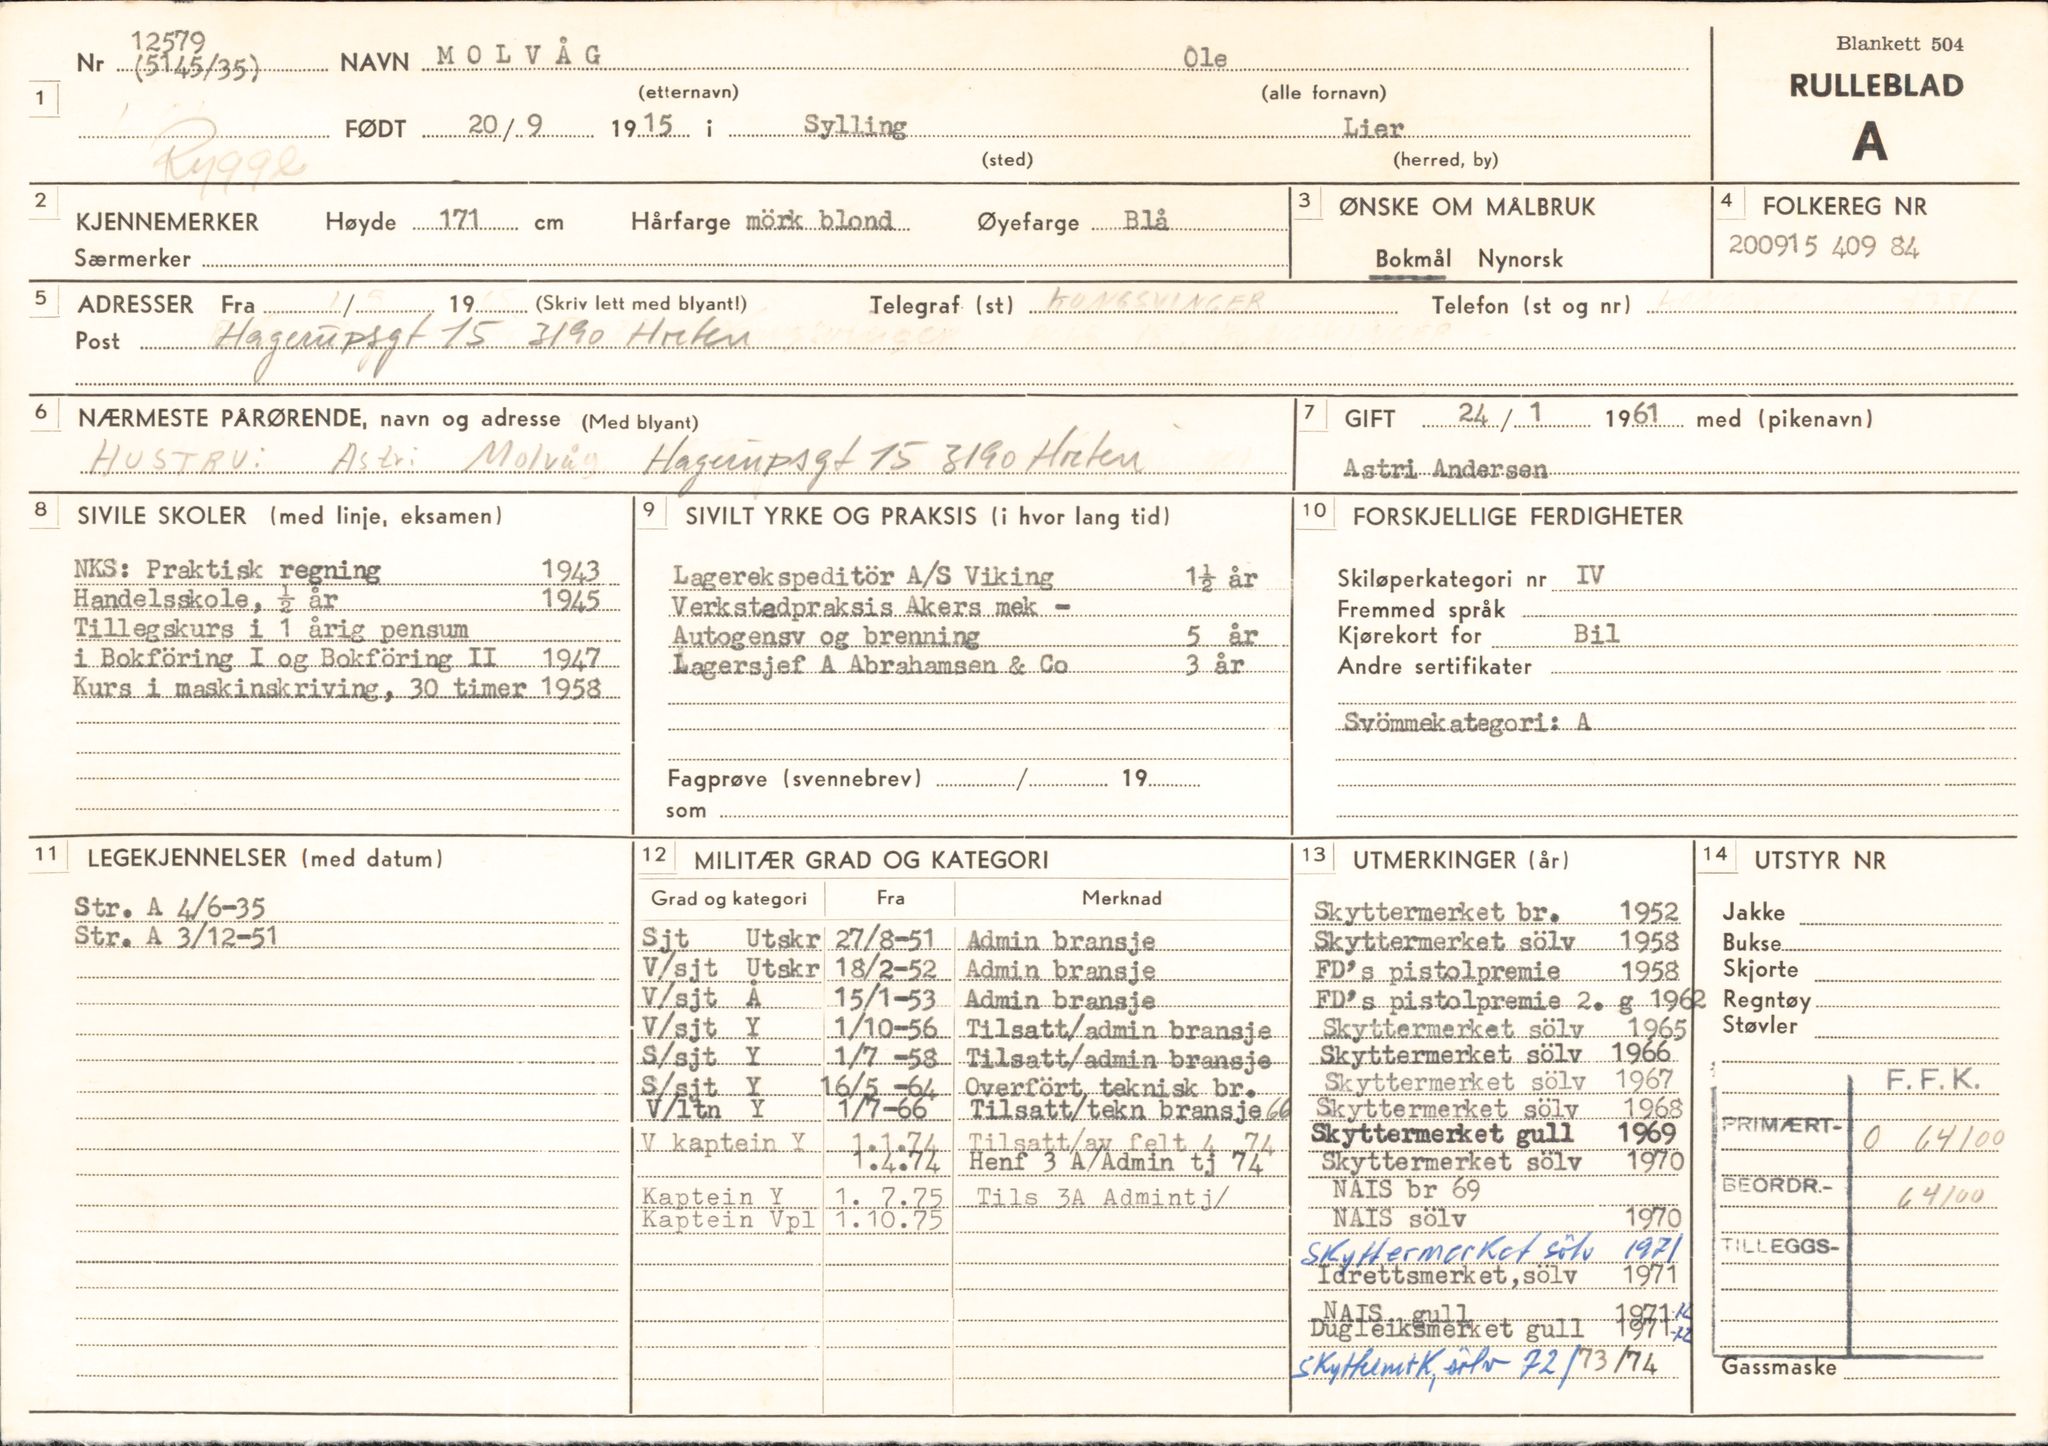 Blankett 504
RULLEBLAD
A
Nr 12579
(5145/35)
NAVN MOLVÅG Ole
(etternavn) (alle fornavn)
1
FØDT 20/9 1915 i Sylling Lier
(sted) (herred, by)
Rygge
2 KJENNEMERKER Høyde 171 cm Hårfarge mörk blond Øyefarge Blå
Særmerker
3 ØNSKE OM MÅLBRUK
Bokmål Nynorsk
4 FOLKEREG NR
200915 409 84
5 ADRESSER Fra / 19 (Skriv lett med blyant!) Telegraf (st) KONGSVINGER Telefon (st og nr)
Post Hagerupsgt 15 3190 Horten
6 NÆRMESTE PÅRØRENDE, navn og adresse (Med blyant)
HUSTRU: Astri Molvåg Hagerupsgt 15 3190 Horten
7 GIFT 24/1 1961 med (pikenavn)
Astri Andersen
8 SIVILE SKOLER (med linje, eksamen)
NKS: Praktisk regning 1943
Handelsskole, ½ år 1945
Tillegskurs i 1 årig pensum
i Bokföring I og Bokföring II 1947
Kurs i maskinskriving, 30 timer 1958
9 SIVILT YRKE OG PRAKSIS (i hvor lang tid)
Lagerekspeditör A/S Viking 1½ år
Verkstedpraksis Akers mek -
Autogensv og brenning 5 år
Lagersjef A Abrahamsen & Co 3 år
Fagprøve (svennebrev) / 19
som
10 FORSKJELLIGE FERDIGHETER
Skiløperkategori nr IV
Fremmed språk
Kjørekort for Bil
Andre sertifikater
Svömmekategori: A
11 LEGEKJENNELSER (med datum)
Str. A 4/6-35
Str. A 3/12-51
12 MILITÆR GRAD OG KATEGORI
Grad og kategori Fra Merknad
Sjt Utskr 27/8-51 Admin bransje
V/sjt Utskr 18/2-52 Admin bransje
V/sjt Å 15/1-53 Admin bransje
V/sjt Y 1/10-56 Tilsatt/admin bransje
S/sjt Y 1/7 -58 Tilsatt/admin bransje
S/sjt Y 16/5 -64 Overfört teknisk br.
V/ltn Y 1/7-66 Tilsatt/tekn bransje 66
V kaptein Y 1.1.74 Tilsatt/av felt 4 74
1.4.74 Henf 3 A/Admin tj 74
Kaptein Y 1. 7.75 Tils 3A Admintj/
Kaptein Vpl 1.10.75
13 UTMERKINGER (år)
Skyttermerket br. 1952
Skyttermerket sölv 1958
FD's pistolpremie 1958
FD's pistolpremie 2. g 1962
Skyttermerket sölv 1965
Skyttermerket sölv 1966
Skyttermerket sölv 1967
Skyttermerket sölv 1968
Skyttermerket gull 1969
Skyttermerket sölv 1970
NAIS br 69
NAIS sölv 1970
Skyttermerket sölv 1971
Idrettsmerket, sölv 1971
NAIS gull 1971
Dugleiksmerket gull 1971
sölv 72/73/74
14 UTSTYR NR
Jakke
Bukse
Skjorte
Regntøy
Støvler
F.F.K.
PRIMÆRT- 0 64100
BEORDR.- 64100
TILLEGGS-
Gassmaske